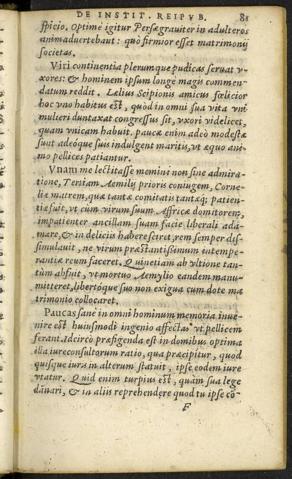 DE INSTIT. REIPVB. 81
spicio. Optimè igitur Persæ grauiter in adulteros
animaduertebant: quò firmior esset matrimonij
societas.
Viri continentia plerumque pudicas seruat v-
xores: & hominem ipsum longè magis commen-
datum reddit. Lælius Scipionis amicus fœlicior
hoc vno habitus est, quòd in omni sua vita vni
mulieri duntaxat congressus sit, vxori videlicet,
quam vnicam habuit. paucæ enim adeò modestæ
sunt adeóque suis indulgent maritis, vt æquo ani-
mo pellices patiantur.
Vnam me lectitasse memini non sine admira-
tione, Tertiam Aemilij prioris coniugem, Corne-
liæ matrem, quæ tantæ comitatis tantæq; patien-
tiæ fuit, vt cùm virum suum Affricæ domitorem,
impatienter ancillam suam facie liberali ada-
mare, & in delicijs habere sciret, rem semper dis-
simulauit, ne virum præstantissimum intempe-
rantiæ reum faceret. Quinetiam ab vltione tan-
tùm abfuit, vt mortuo Aemylio eandem manu-
mitteret, libertóque suo non exigua cum dote ma
trimonio collocaret.
Paucas sane in omni hominum memoria inue-
nire est huiusmodi ingenio affectas vt pellicem
ferant. Idcircò præfigenda est in domibus optima
illa iureconsultorum ratio, qua præcipitur, quod
quisque iuris in alterum statuit, ipse eodem iure
vtatur. Quid enim turpius est, quàm sua lege
dãnari, & in alijs reprehendere quod tu ipse cõ-
F